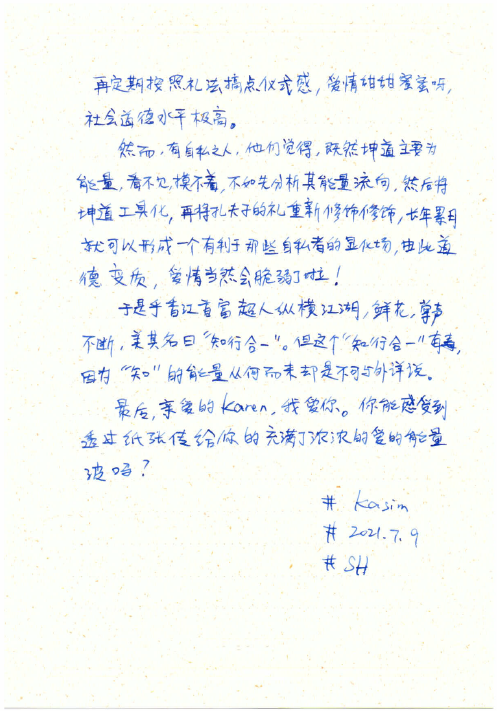 再定期按照礼法搞点仪式感，爱情甜甜蜜蜜呀，
社会道德水平极高。
然而，有自私之人，他们觉得，既然坤道主要为
能量，看不见，摸不着，不如先分析其能量流向，然后将
坤道工具化，再将孔夫子的礼重新修饰修饰，长年累月
就可以形成一个有利于那些自私者的显化场，由此道
德变质，爱情当然会脆弱了啦！
于是乎香江首富超人纵横江湖，鲜花，掌声
不断，美其名曰“知行合一”。但这个“知行合一”有毒，
因为“知”的能量从何而来却是不可与外详说。
最后，亲爱的Karen，我爱你。你能感受到
透过纸张传给你的充满了浓浓的爱的能量
波吗？
# Kasim
# 2021.7.9
# SH